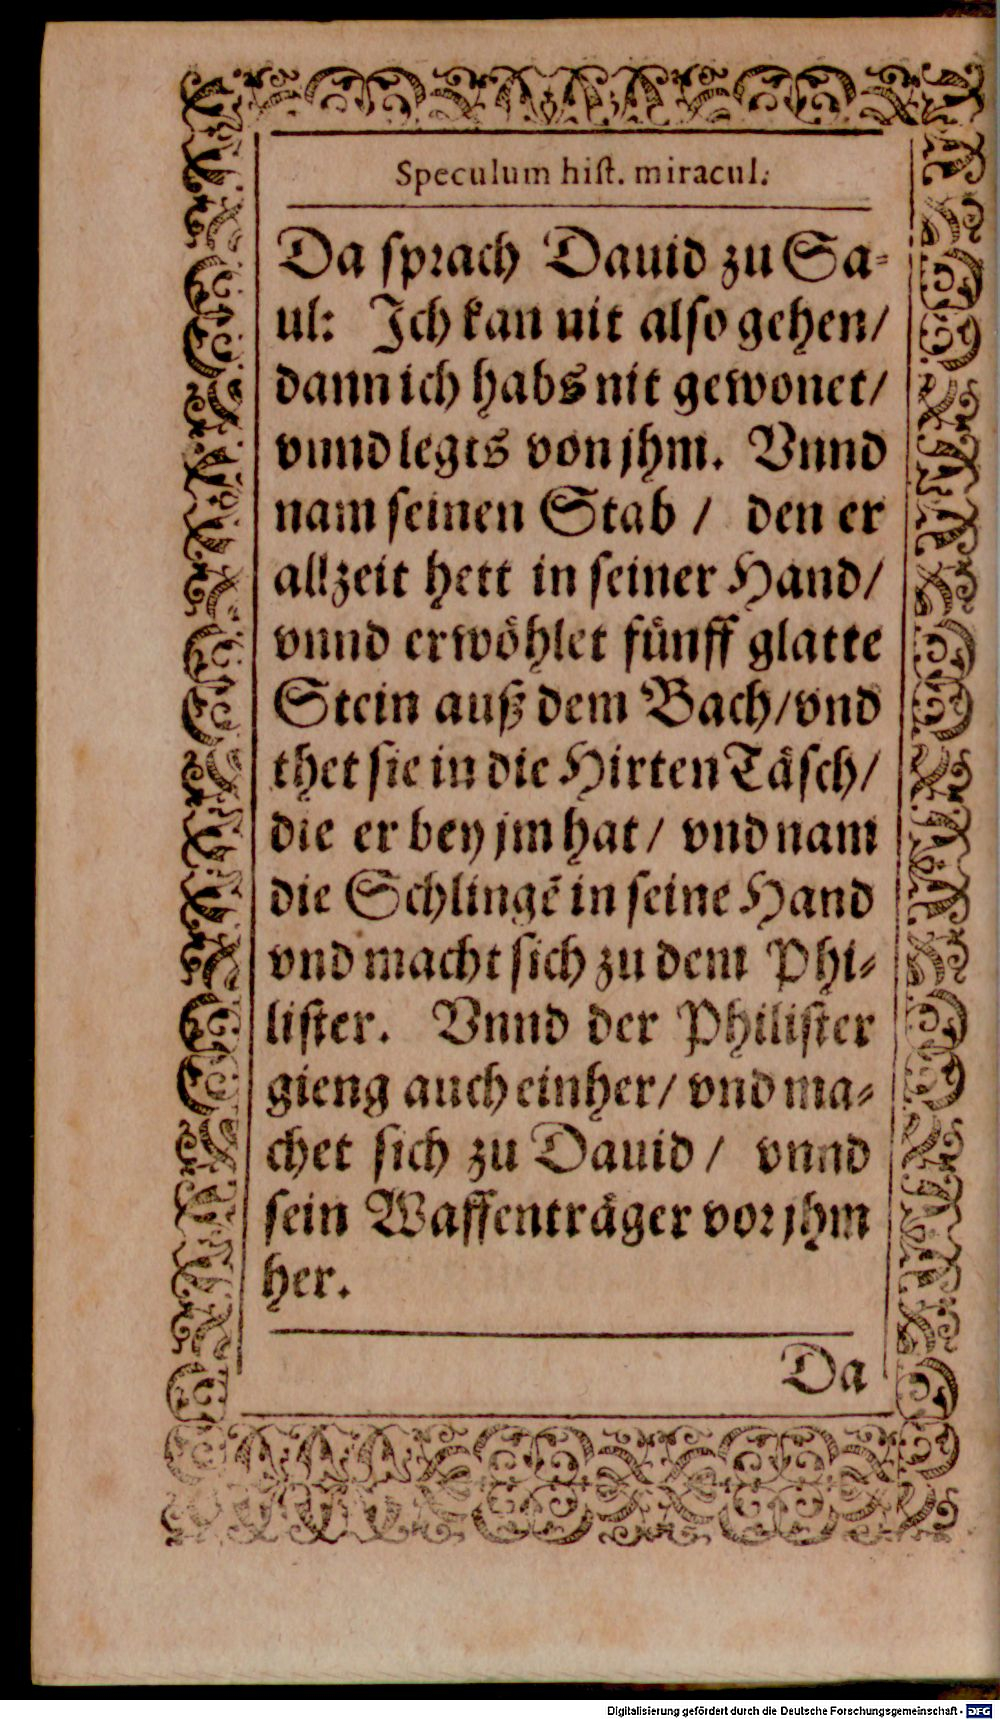 Speculum hiſt. miracul.
Da ſprach Dauid zu Sa⸗
ul: Ich kan nit alſo gehen/
dann ich habs nit gewonet/
vnnd legts von jhm. Vnnd
nam ſeinen Stab / den er
allzeit hett in ſeiner Hand/
vnnd erwöhlet fünff glatte
Stein auß dem Bach/ vnd
thet ſie in die Hirten Täſch/
die er bey jm hat/ vnd nam
die Schlingẽ in ſeine Hand
vnd macht ſich zu dem Phi⸗
liſter. Vnnd der Philiſter
gieng auch einher/ vnd ma⸗
chet ſich zu Dauid / vnnd
ſein Waffenträger voꝛ jhm
her.
Da
Digitalisierung gefördert durch die Deutsche Forschungsgemeinschaft - DFG